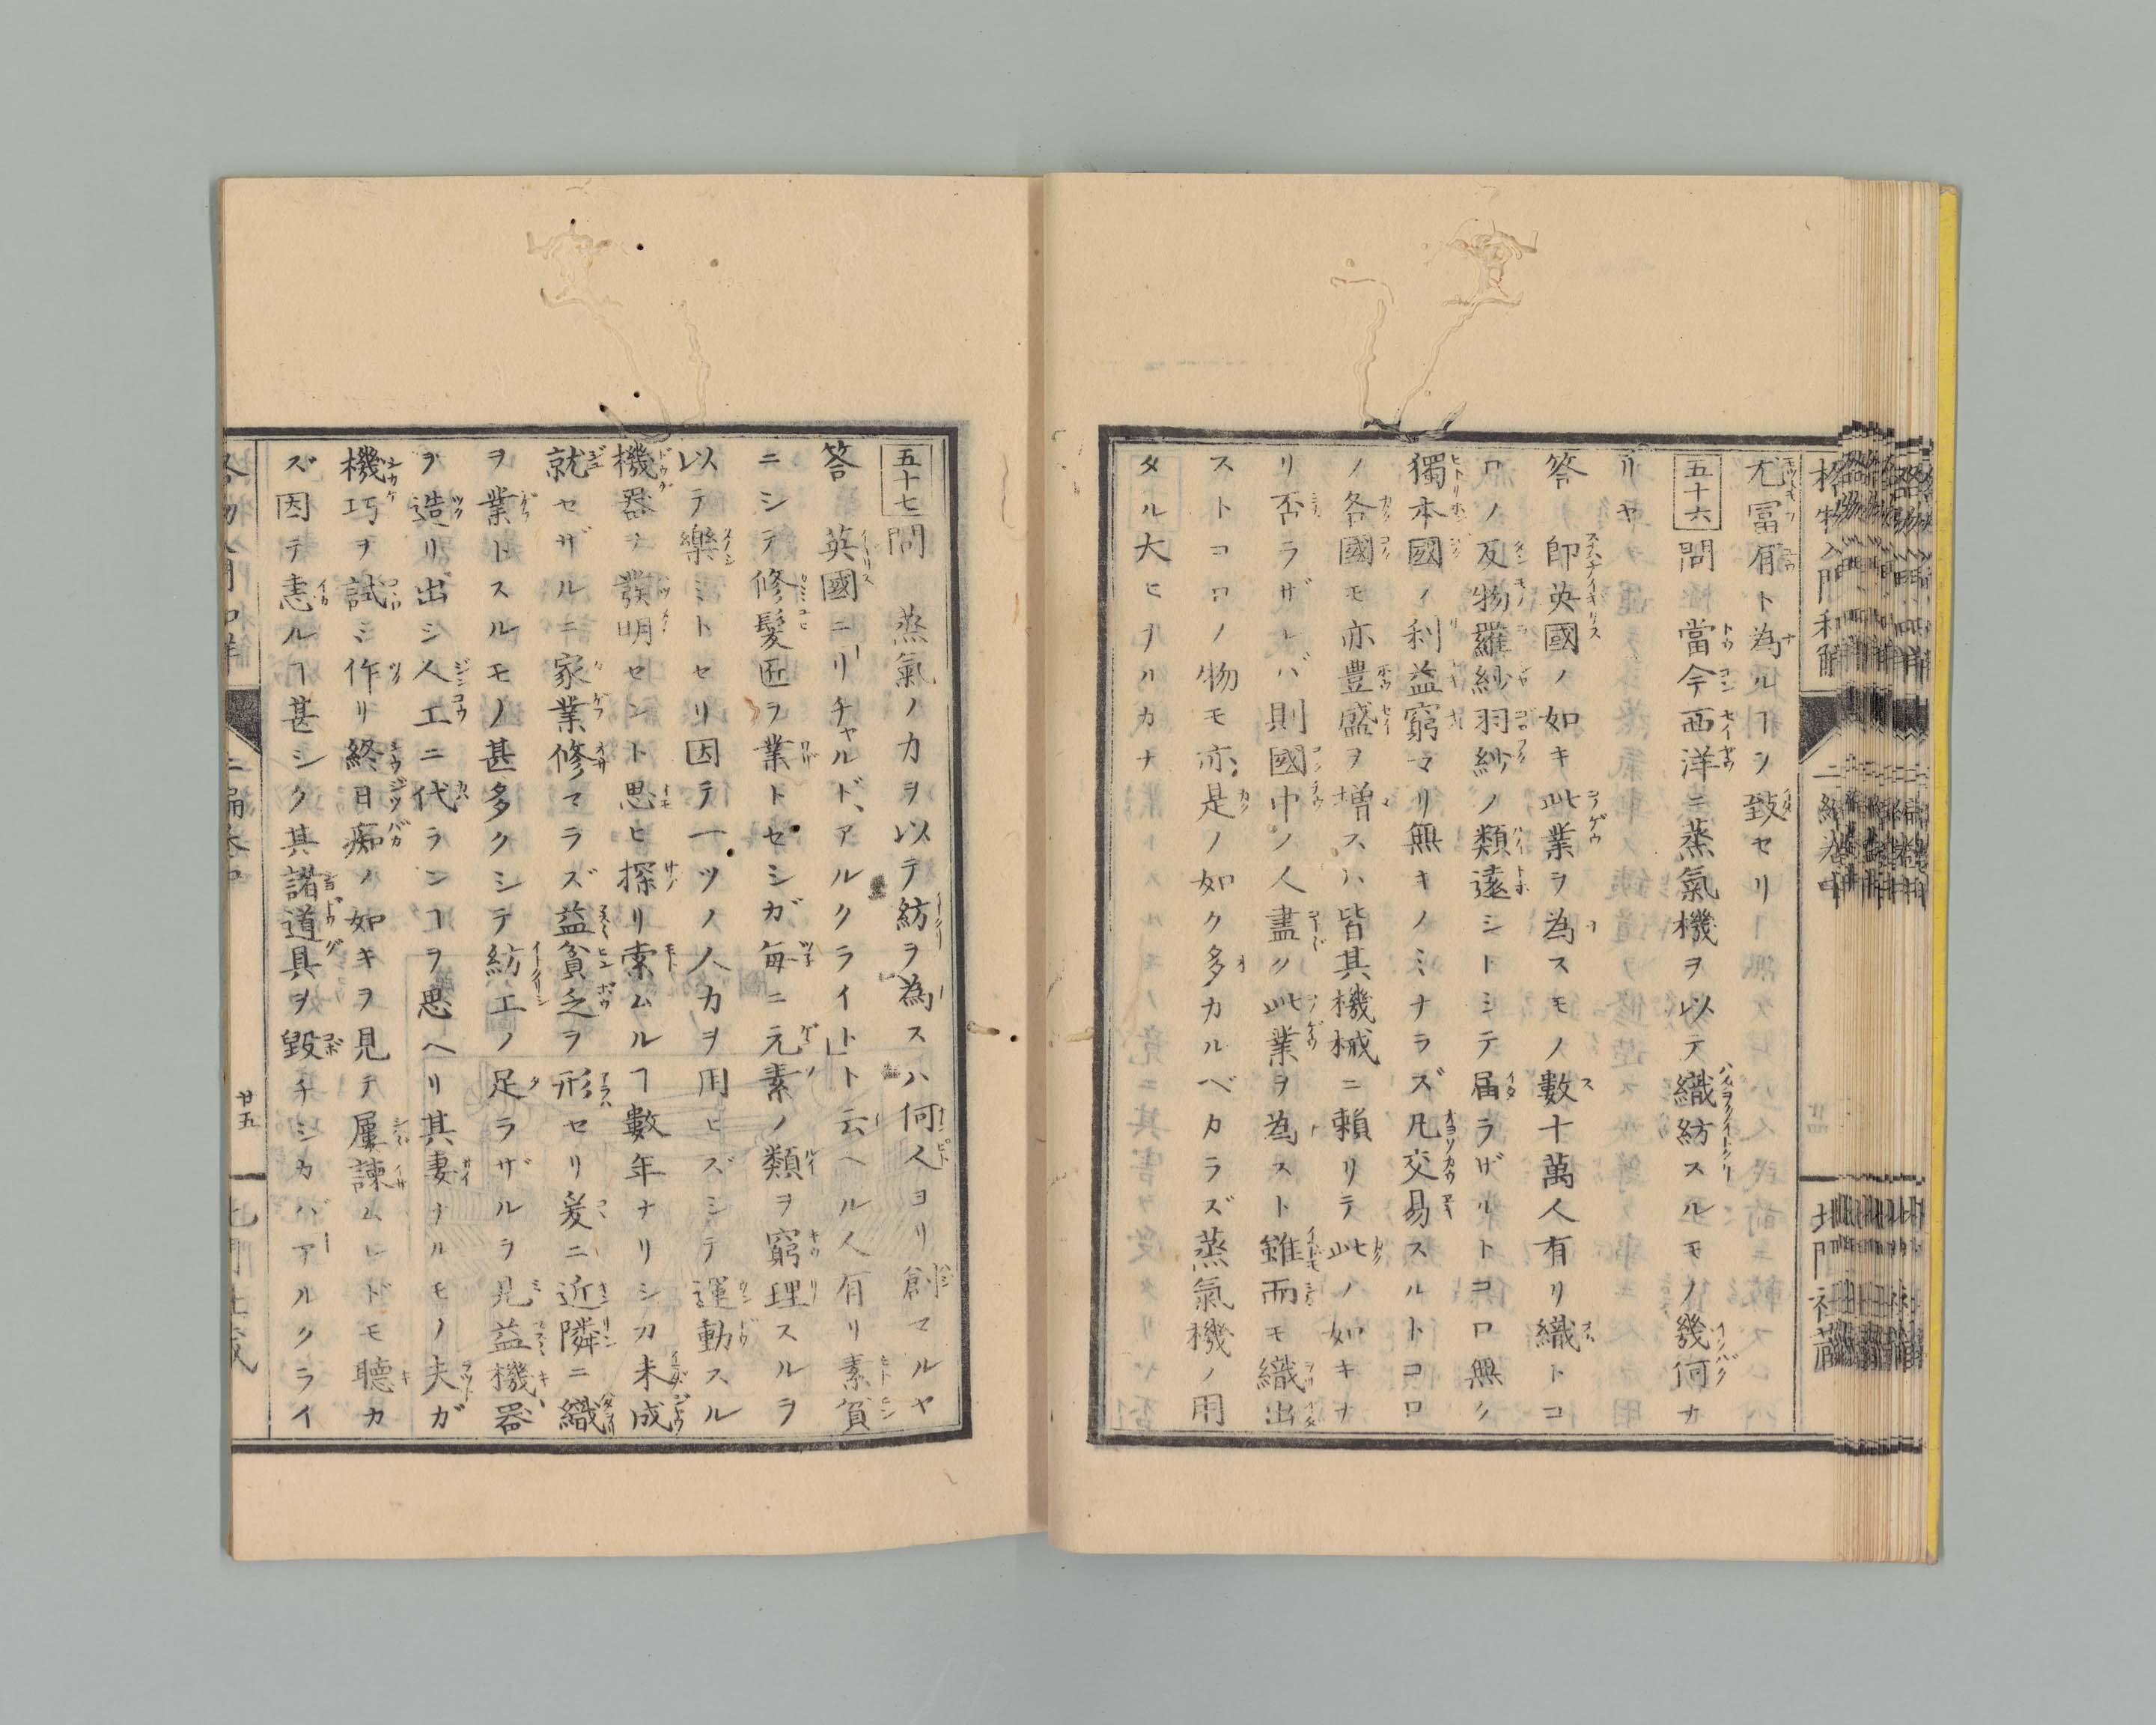 格物入門和解
二編卷中
北門社藏
尤冨有ト為ルヿヲ致セリ
五十六 問 當今西洋ニ蒸氣機ヲ以テ織紡スルモノ幾何ナ
リヤ
答 即英國ノ如キ此業ヲ為スモノ數十萬人有リ織トコ
ロノ反物羅紗羽紗ノ類遠シトシテ届ラザルトコロ無ク
獨本國ノ利益窮マリ無キノミナラズ凡交易スルトコロ
ノ各國モ亦豊盛ヲ增スハ皆其機械ニ賴リテ此ノ如キナ
リ否ラザレバ則國中ノ人盡ク此業ヲ為スト雖而モ織出
ストコロノ物モ亦是ノ如ク多カルベカラズ蒸氣機ノ用
タル大ヒナルカナ
五十七 問 蒸氣ノ力ヲ以テ紡ヲ為スハ何人ヨリ創マルヤ
答 英國ニリチャルド、アルクライト」ト云ヘル人有リ素貧
ニシテ修髮匠ヲ業トセシガ每ニ元素ノ類ヲ窮理スルヲ
以テ樂ミトセリ因テ一ツノ人力ヲ用ヒズシテ運動スル
機器ヲ發明セント思ヒ探リ索ムルヿ數年ナリシカ未成
就セザルニ家業修マラズ益貧乏ヲ形セリ爰ニ近隣ニ織
ヲ業トスルモノ甚多クシテ紡工ノ足ラザルヲ見益機器
ヲ造リ出シ人工ニ代ランヿヲ思ヘリ其妻ナルモノ夫ガ
機巧ヲ試ミ作リ終日痴ノ如キヲ見テ屢諫ムレドモ聽カ
ズ因テ恚ルヿ甚シク其諸道具ヲ毀チシカバアルクライ
二編卷中
廿五
北門社藏